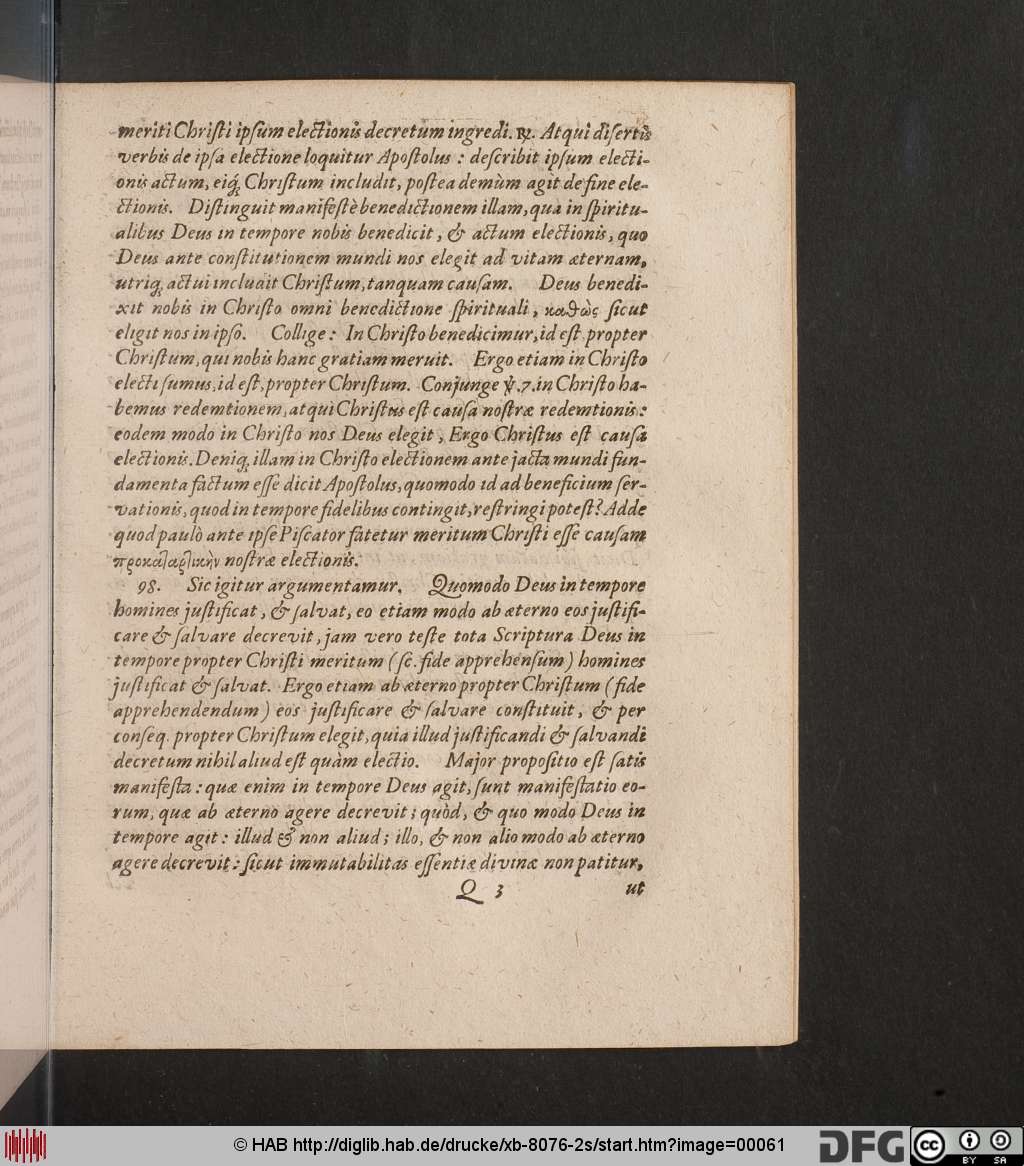 meriti Chriſti ipſum electionis decretum ingredi. ꝶ. Atqui diſertis
verbis de ipſa electione loquitur Apoſtolus : deſcribit ipſum electi-
onis actum, eiq́; Chriſtum includit, poſtea demùm agit de fine ele-
ctionis. Diſtinguit manifeſtè benedictionem illam, qua in ſpiritu-
alibus Deus in tempore nobis benedicit, & actum electionis, quo
Deus ante conſtitutionem mundi nos elegit ad vitam æternam,
utriq; actui includit Chriſtum, tanquam cauſam. Deus benedi-
xit nobis in Chriſto omni benedictione ſpirituali, καθὼς ſicut
eligit nos in ipſo. Collige : In Chriſto benedicimur, id eſt propter
Chriſtum, qui nobis hanc gratiam meruit. Ergo etiam in Chriſto
electi ſumus, id eſt, propter Chriſtum. Conjunge ℣. 7. in Chriſto ha-
bemus redemtionem, atqui Chriſtus eſt cauſa noſtræ redemtionis :
eodem modo in Chriſto nos Deus elegit, Ergo Chriſtus eſt cauſa
electionis. Deniq; illam in Chriſto electionem ante jacta mundi fun-
damenta factum eſſe dicit Apoſtolus, quomodo id ad beneficium ſer-
vationis, quod in tempore fidelibus contingit, reſtringi poteſt? Adde
quod paulò ante ipſe Piſcator fatetur meritum Chriſti eſſe cauſam
προκαταρτικὴν noſtræ electionis.
98. Sic igitur argumentamur. Quomodo Deus in tempore
homines juſtificat, & ſalvat, eo etiam modo ab æterno eos juſtifi-
care & ſalvare decrevit, jam vero teſte tota Scriptura Deus in
tempore propter Chriſti meritum (ſc. fide apprehenſum) homines
juſtificat & ſalvat. Ergo etiam ab æterno propter Chriſtum (fide
apprehendendum) eos juſtificare & ſalvare conſtituit, & per
conſeq. propter Chriſtum elegit, quia illud juſtificandi & ſalvandi
decretum nihil aliud eſt quàm electio. Major propoſitio eſt ſatis
manifeſta : quæ enim in tempore Deus agit, ſunt manifeſtatio eo-
rum, quæ ab æterno agere decrevit ; quòd, & quo modo Deus in
tempore agit : illud & non aliud ; illo, & non alio modo ab æterno
agere decrevit : ſicut immutabilitas eſſentiæ divinæ non patitur,
Q 3 ut
© HAB http://diglib.hab.de/drucke/xb-8076-2s/start.htm?image=00061
DFG
cc BY SA